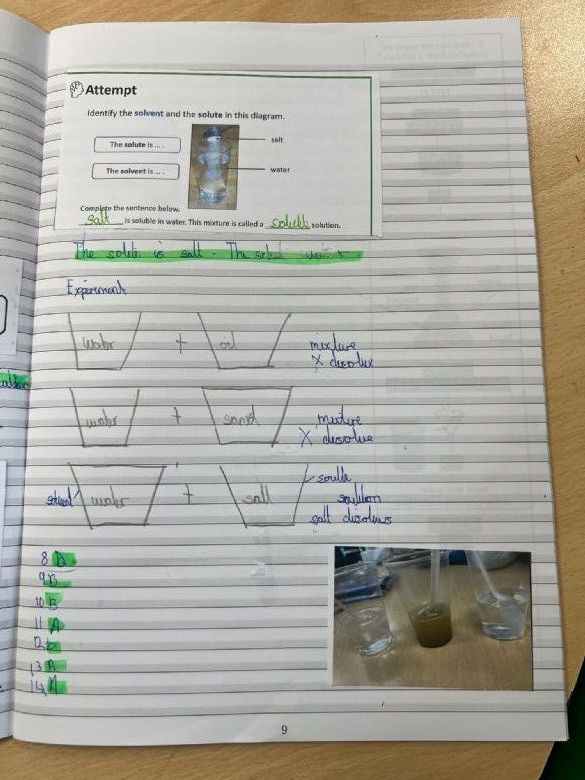 Attempt
Identify the solvent and the solute in this diagram.
The solute is ....
salt
The solvent is ....
water
Complete the sentence below.
salt is soluble in water. This mixture is called a soluble solution.
The solute is salt. The
Experiment
water + oil
mixture
X
water + sand
X
solvent water + salt
salt
8 B
9 B
10 B
11 A
12
13 A
14 A
9